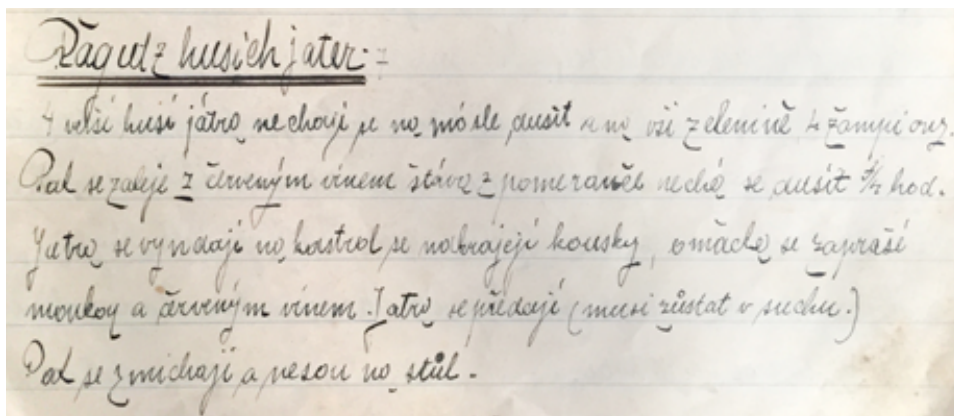 Ragu z husích jater.
4 velší husí játra nechají se na másle dusit a na vší zelenině 4 žampiony.
Pak se zaleje z červeným vínem šťáva z pomeranče nechá se dusit hod.
Játra se vyndají na kastrol se nakrájejí kousky, omáčka se zapráší
moukou a červeným vínem. Játra se předají (musí zůstat v suchu.)
Pak se zmíchají a nesou na stůl.